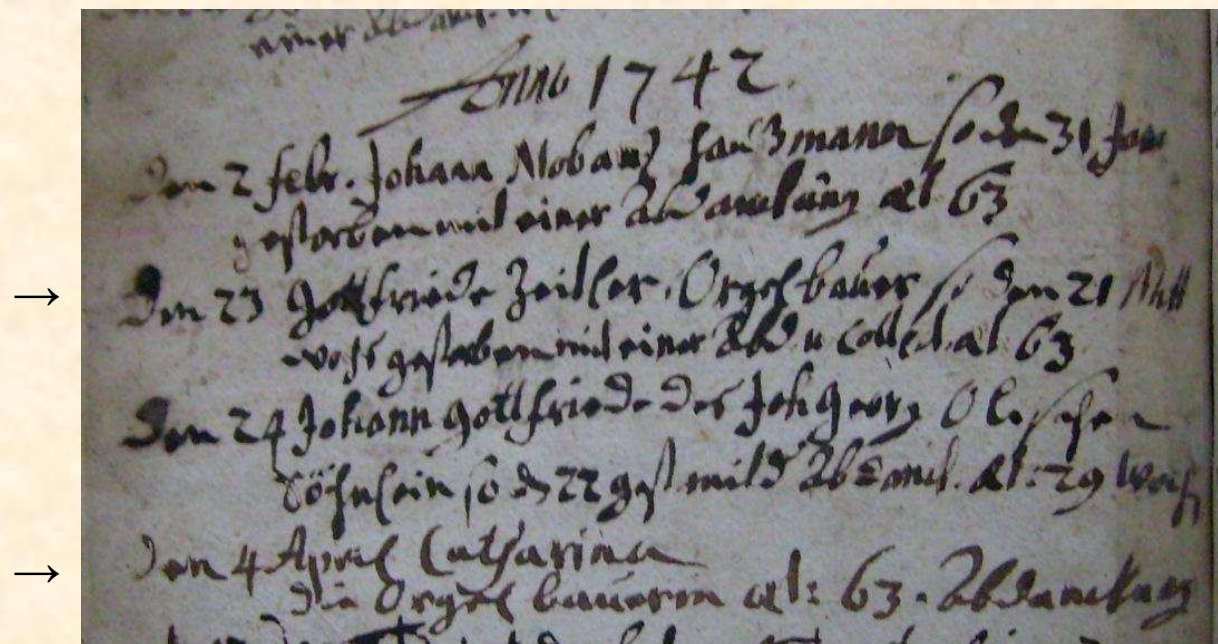 einer
Anno 1742
Den 2 febr. Johann Mobanz Haußmann so den 31 Jan
gestorben mit einer Abdanckung aet 63
→ Den 23 Gottfriede Zeitler Orgelbauer so den 21 Mitt
woch gestorben mit einer Abd u Collect. aet 63
Den 24 Johann Gottfriede des Joh Georg
Söhnlein so d 22 gest mit d Abdanck. aet: 29 Woch
→ Den 4 April Catharina
die Orgelbauerin aet: 63. Abdanckung